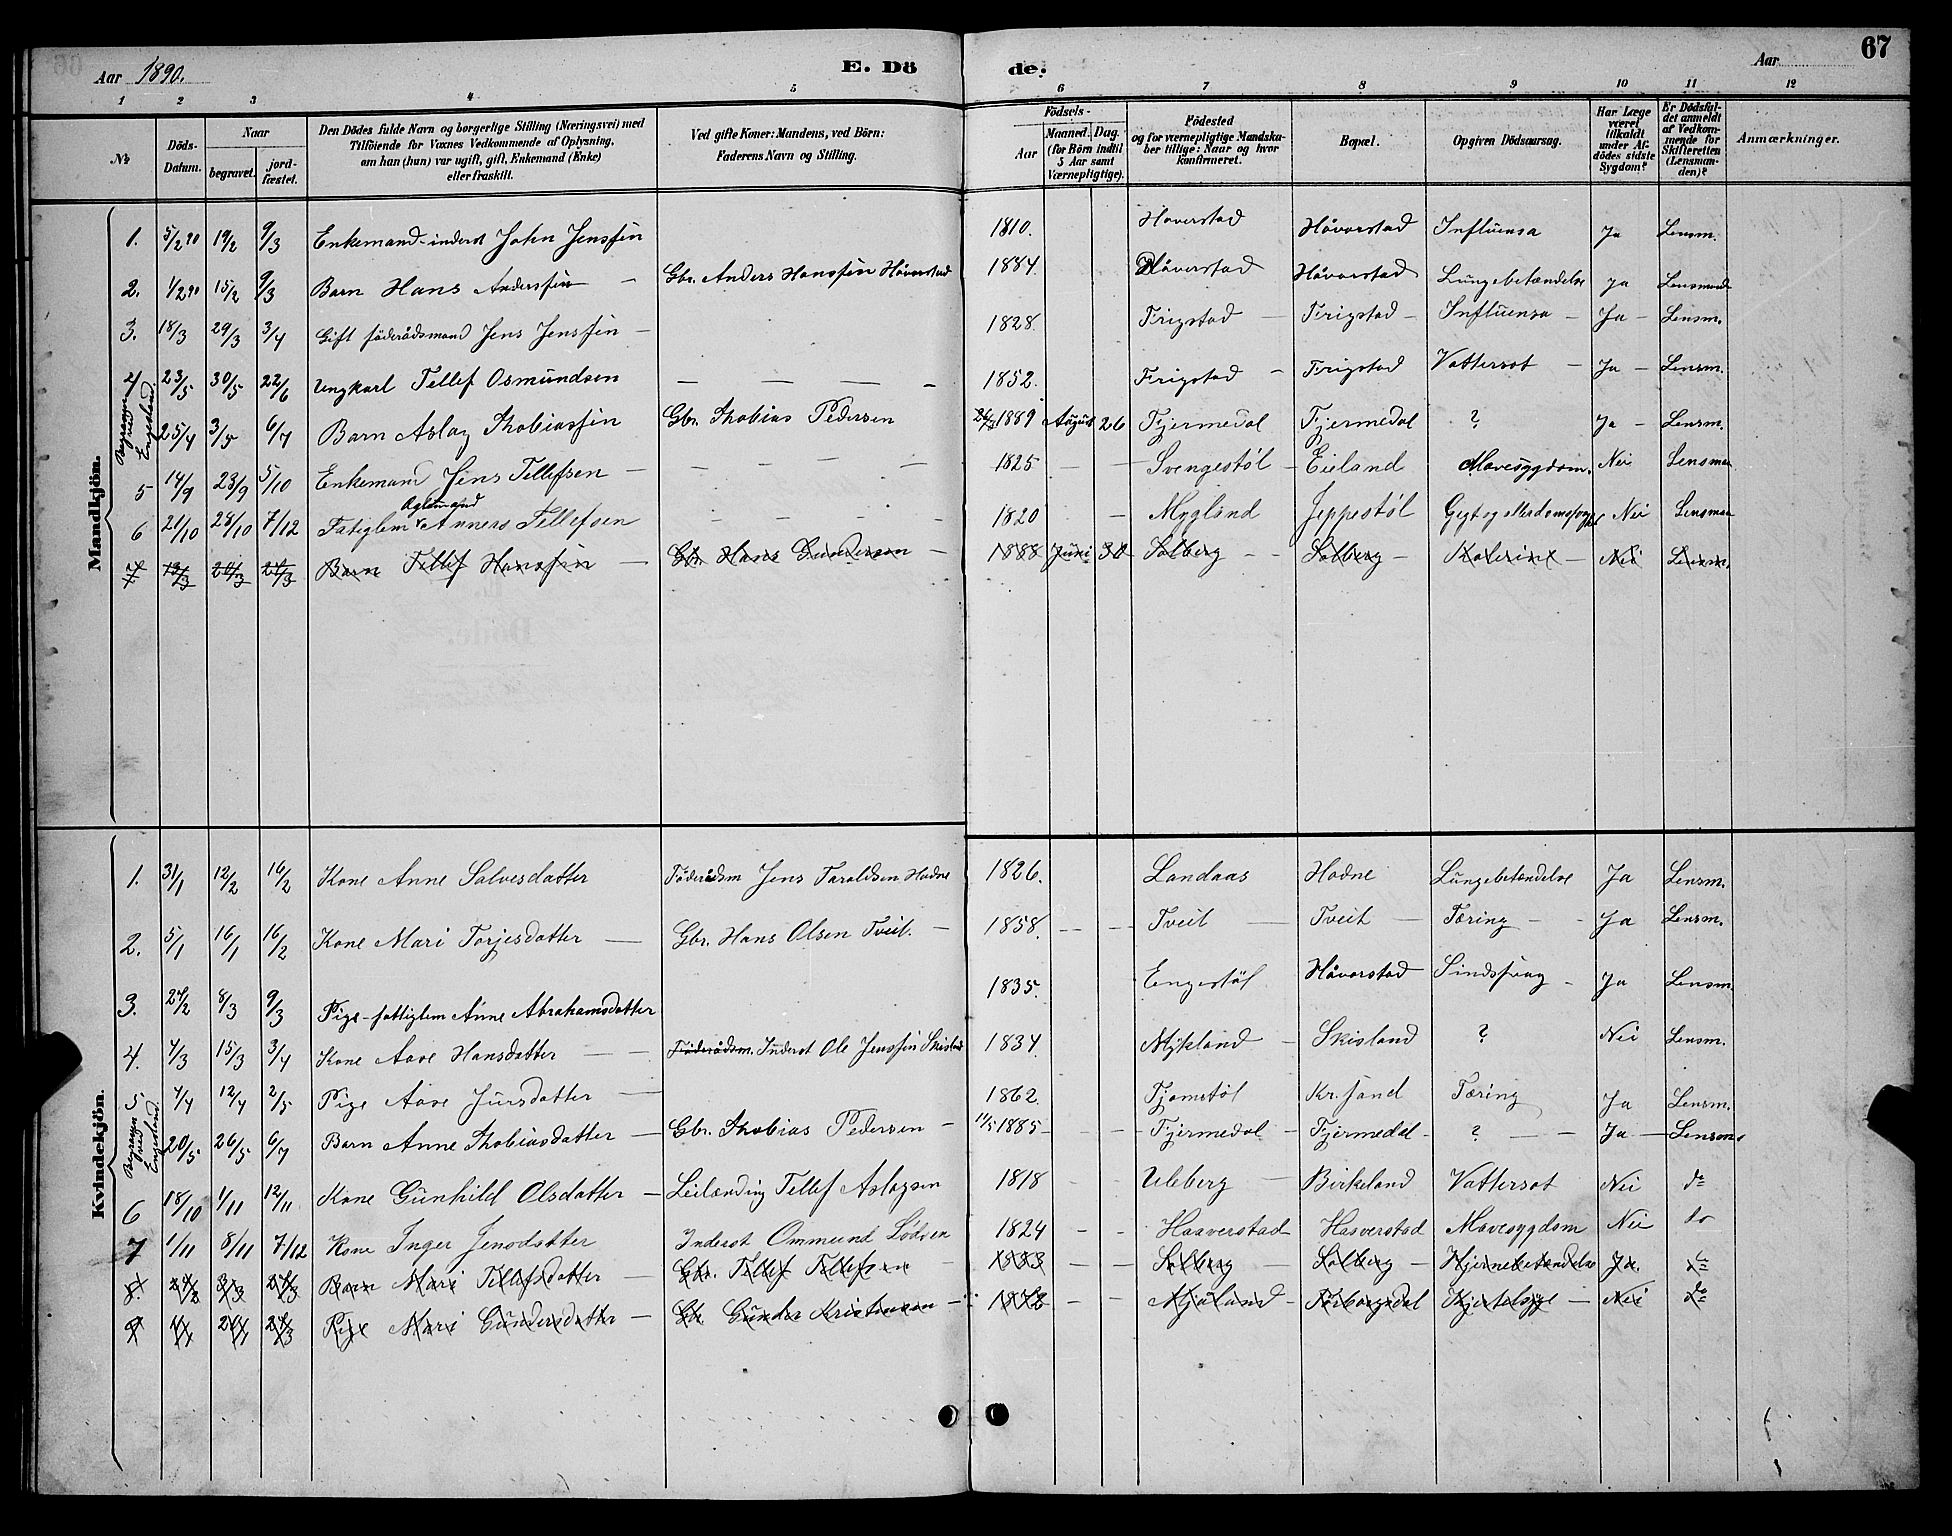 Aar 1890. E. Dö de. Aar 67
1 2 3 4 5 6 7 8 9 10 11 12
No
Döds-Datum.
Naar
begravet.
jord-fæstet.
Den Dödes fulde Navn og borgerlige Stilling (Næringsvei) med
Tilföiende for Voxnes Vedkommende af Oplysning,
om han (hun) var ugift, gift, Enkemand (Enke)
eller fraskilt.
Ved gifte Koner: Mandens, ved Börn:
Faderens Navn og Stilling.
Födsels-
Aar
Maaned. Dag.
(for Börn indtil
5 Aar samt
Værnepligtige).
Födested
og for værnepligtige Mandska-
ber tillige: Naar og hvor
konfirmeret.
Bopæl.
Opgiven Dödsaarsag.
Har Læge
været
tilkaldt
under Af-
dödes sidste
Sygdom?
Er Dödsfal-
det anmeldt
af Vedkom-
mende for
Skifteretten
(Lensman-
den)?
Anmærkninger.
Mandkjön.
1. 5/2 90 19/2 9/3 Enkemand-inderst John Jenssøn 1810. Haverstad Håverstad Influensa Ja Lensm.
2. 1/2 90 15/2 9/3 Barn Hans Anderssøn — Gbr. Anders Hanssøn Håverstad 1884. Håverstad Håverstad Lungebetændelse Ja Lensmand
3. 18/3 29/3 3/4 Gift föderådsmand Jens Jenssøn — 1828. Frigstad — Frigstad — Influensa — Ja — Lensm.
4 23/5 30/5 22/6 Ungkarl Tellef Osmundsen — — — — 1852. Frigstad — Frigstad Vattersot — Ja — Lensm.
Begraven ved Engesland.
25/4 3/5 6/7 Barn Aslag Thobiassøn Gbr. Thobias Pedersen 1889 August 26 Fjermedal Fjermedal ? Ja — Lensm.
5 14/9 23/9 5/10 Enkemand Jens Tellefsen — — — — — 1825 — — Svengestöl — Eieland Mavesygdom. Nei Lensman
6 21/10 28/10 7/12 Fatiglem Anners Tellefsen — — — — 1820 — Mygland Jeppestöl Nei Lensman
7 13/3 24/3 Barn Tellef Hanssøn — Gbr. Hans Gundersen — 1888 Juni 30 Solberg — — Solberg — Nei Lensm.
Kvindekjön.
1. 31/1 12/2 16/2 Kone Anne Salvesdatter Föderådsm Jens Taraldsen Hodne 1826. Landaas Hodne Lungebetændelse Ja Lensm.
2. 5/1 16/1 16/2 Kone Mari Torjesdatter — Gbr. Hans Olsen Tveit. — 1858. — — Tveit — Tveit — Tæring — — Ja Lensm.
3. 24/2 8/3 9/3 Pige-fattiglem Anne Abrahamsdatter 1835. Engestöl Håverstad Sindssvag — Ja Lensm.
4. 4/3 15/3 3/4 Kone Aase Hansdatter — — Föderådsm. Inderst Ole Jenssøn Skisland 1834 Mykland — Skisland ? Nei Lensm.
5. 4/4 12/4 2/5 Pige Aase Jursdatter — 1862. Fjomstöl Kr.sand Tæring Ja Lensm.
Begraven ved Engesland.
20/5 26/5 6/7 Barn Anne Thobiasdatter — Gbr. Thobias Pedersen — 11/5 1885 — — Fjermedal — Fjermedal — ? — — Ja — Lensm.
6 18/10 1/11 12/11 Kone Gunhild Olsdatter — Leilænding Tellef Aslagsen 1818 — — Uleberg — Birkeland Vattersot Nei do
7 1/11 8/11 7/12 Kone Inger Jensdatter Inderst Ommund Lödsen 1824 — — Haaverstad Haaverstad Mavesygdom Nei do
8 Barn Mari Tellefsdatter — Gbr. Tellef Tellefsen — 1883 — — Solberg Solberg — Hjernebetændelse Ja. do
9 Pige Mari Gundersdatter — Gbr. Gunder Kristensen — 1872 — — Mjåland — Nei do